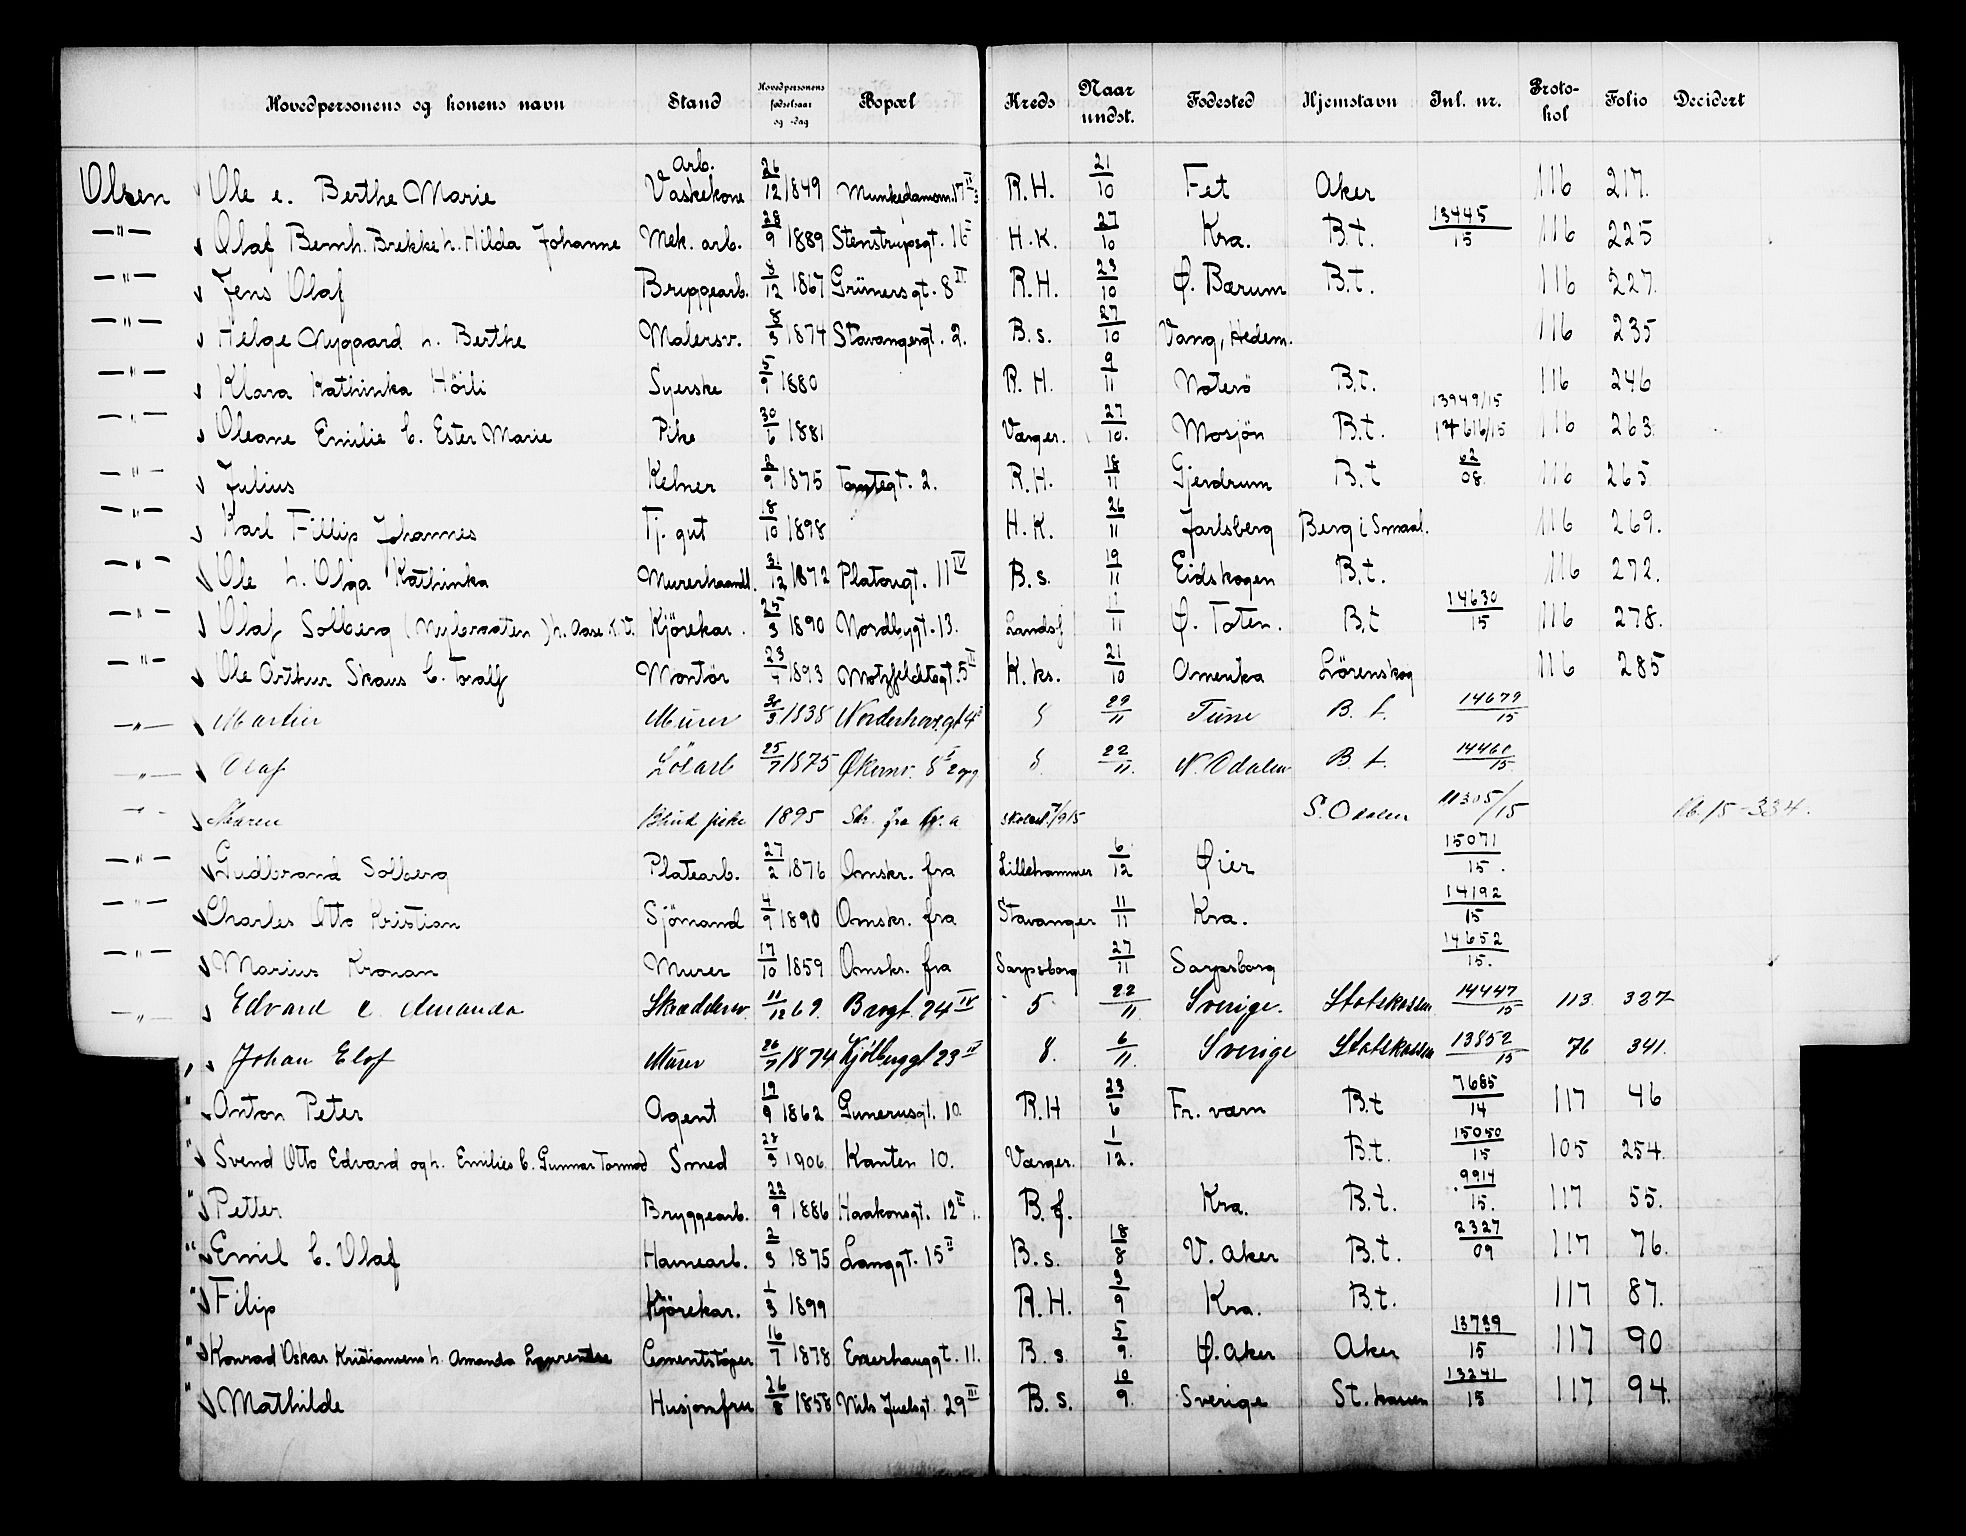 Hovedpersonens og konens navn Stand Hovedpersonens fødselsaar og -dag Bopæl Kreds Naar undst. Fødested Hjemstavn Jnl. nr. Protokol Folio Decidert
Olsen Ole e. Berthe Marie Arb. Vaskekone 26/12 1849 Munkedamsv. 17 II R.H. 21/10 Fet Aker 116 217.
—"— Olaf Bernh. Brekke h. Hilda Johanne Mek. arb. 28/9 1889 Stenstrupsgt. 16 I H.K. 27/10 Kra. B.t. 13445/15 116 225
—"— Jens Olaf Bryggearb. 8/12 1867 Grünersgt. 8 II R.H. 23/10 Ø. Bærum B.t. 116 227.
—"— Helge Nygaard h. Berthe Malersv. 8/3 1874 Stavangergt. 2. B.s. 27/10 Vang, Hedem. 116 235
—"— Klara Kathinka Höili Syerske 5/9 1880 R.H. 9/11 Noterö B.t. 116 246
—"— Oleane Emilie b. Ester Marie Pike 30/6 1881 Værger. 27/10. Mosjön B.t. 13949/15 14616/15 116 263.
—"— Julius Kelner 2/9 1875 Tomtegt. 2. R.H. 18/11 Gjerdrum B.t 62/08. 116 265
—"— Karl Fillip Johannes Tj. gut 18/10 1898 H.K. 26/11 Jarlsberg Berg i Smaal. 116 269.
—"— Ole h. Olga Kathinka Murerhaandl. 31/12 1872 Platougt. 11 IV B.s. 19/11 Eidskogen B.t. 116 272.
—"— Olaf Solberg (Nybraaten) h. Aase K.V. Kjörekar. 25/3 1890 Nordbygt. 13. Landsf 1/11 Ø. Toten. B.t 14630/15 116 278.
—"— Ole Arthur Skaus b. Toralf Montör 23/7 1893 Motzfeldtsgt. 5 II K.ks. 21/10 Amerika Lörenskog 116 285
—"— Martin Murer 30/3 1838 Norderhovsgt 4 8 29/11 Tune B.t. 14679/15
—"— Olaf Lösarb 25/7 1875 Økernv. 8 I 2 opg 8. 22/11. N. Odalen B.t. 14460/15.
—"— Maren Blind pike 1895 Skr. fra S. Odalen 11305/15 15-334.
—"— Gudbrand Solberg Platearb. 27/2 1876 Omskr. fra Lillehammer 6/12 Øier 15071/15.
—"— Charles Otto Kristian Sjömand 4/9 1890 Omskr. fra Stavanger 11/11 Kra. 14192/15
—"— Marius Kronan Murer 17/10 1859 Omskr. fra Sarpsborg 27/11 Sarpsborg 14652/15.
—"— Edvard e. Amanda Skræddersv. 11/12 69. Bergt. 24 IV 5 22/11. Sverige. Statskassen 14447/15 113. 327
" Johan Elof Murer 26/7 1874 Kjölberggt 23 IV 8. 6/11. Sverige Statskassen 13852/15 76 341.
" Anton Peter Agent 19/9 1862 Gunerusgt. 10. R.H 23/6 Fr. værn B.t 7685/14 117 46
" Svend Otto Edvard og h. Emilies b. Gunnar Tormod Smed 28/3 1906. Kanten 10. Værger. 1/12. B.t. 15050/15 105 254.
" Petter Bryggearb. 22/9 1886 Haakonsgt. 12 II. B.f. Kra. B.t. 9914/15. 117 55.
" Emil b. Olaf Havnearb. 2/3 1875 Langgt. 15 II B.s. 18/8 V. Aker B.t. 2327/09 117 76.
" Filip Kjörekar. 1/3 1899 R.H. 3/9 Kra. B.t. 117 87.
" Konrad Oskar Kristiansens h. Amanda Cementstöper 16/7 1878 Enerhauggt. 11. B.s. 5/9. Ø. Aker Aker 13739/15 117 90
" Mathilde Husjomfru 26/8 1858 Nils Juelsgt. 29 III B.s. 10/9. Sverige St. kassen 13241/15 117 94.